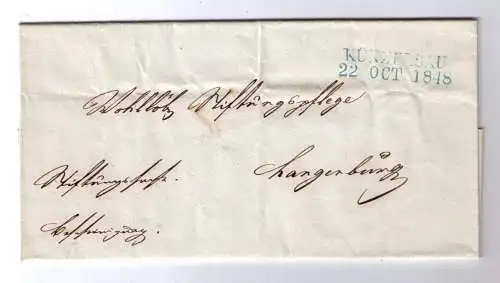 KÜNZELSAU
22 OCT 1848
Wohllöbl Stiftungspflege
Langenburg
Stiftungssache.
Bescheinigung.